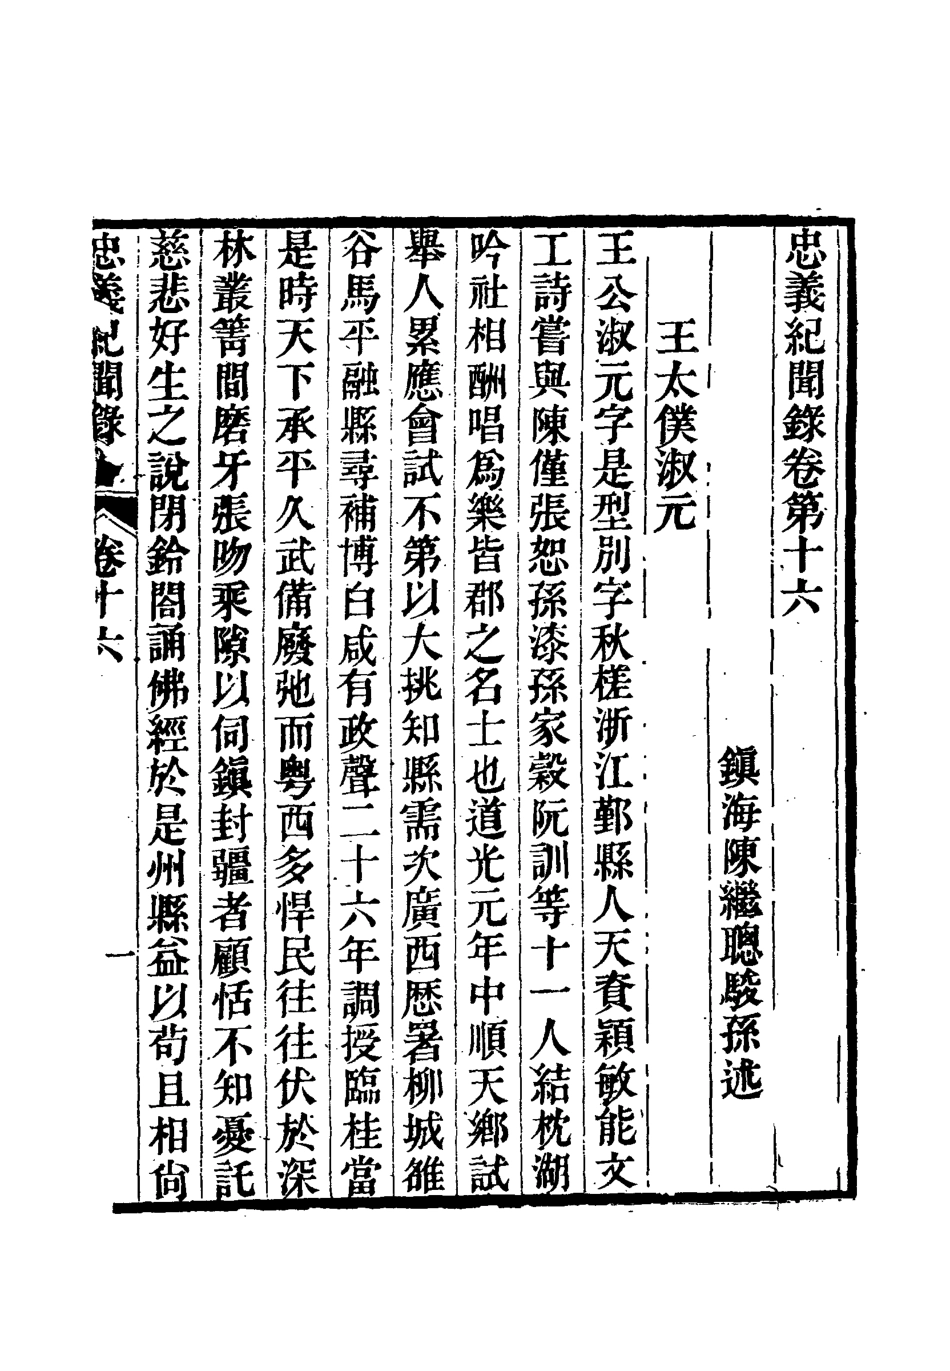 忠義紀聞錄卷第十六
鎭海陳繼聰駿孫述
王太僕淑元
王公淑元字是型別字秋槎浙江鄞縣人天資穎敏能文
工詩嘗與陳僅張恕孫漆孫家穀阮訓等十一人結枕湖
吟社相酬唱爲樂皆郡之名士也道光元年中順天鄕試
舉人累應會試不第以大挑知縣需次廣西歷署柳城雒
谷馬平融縣尋補博白咸有政聲二十六年調授臨桂當
是時天下承平久武備廢弛而粤西多悍民往往伏於深
林叢箐間磨牙張吻乘隙以伺鎭封疆者顧恬不知憂託
慈悲好生之說閉鈴閤誦佛經於是州縣益以苟且相尙
忠義紀聞錄
卷十六
一